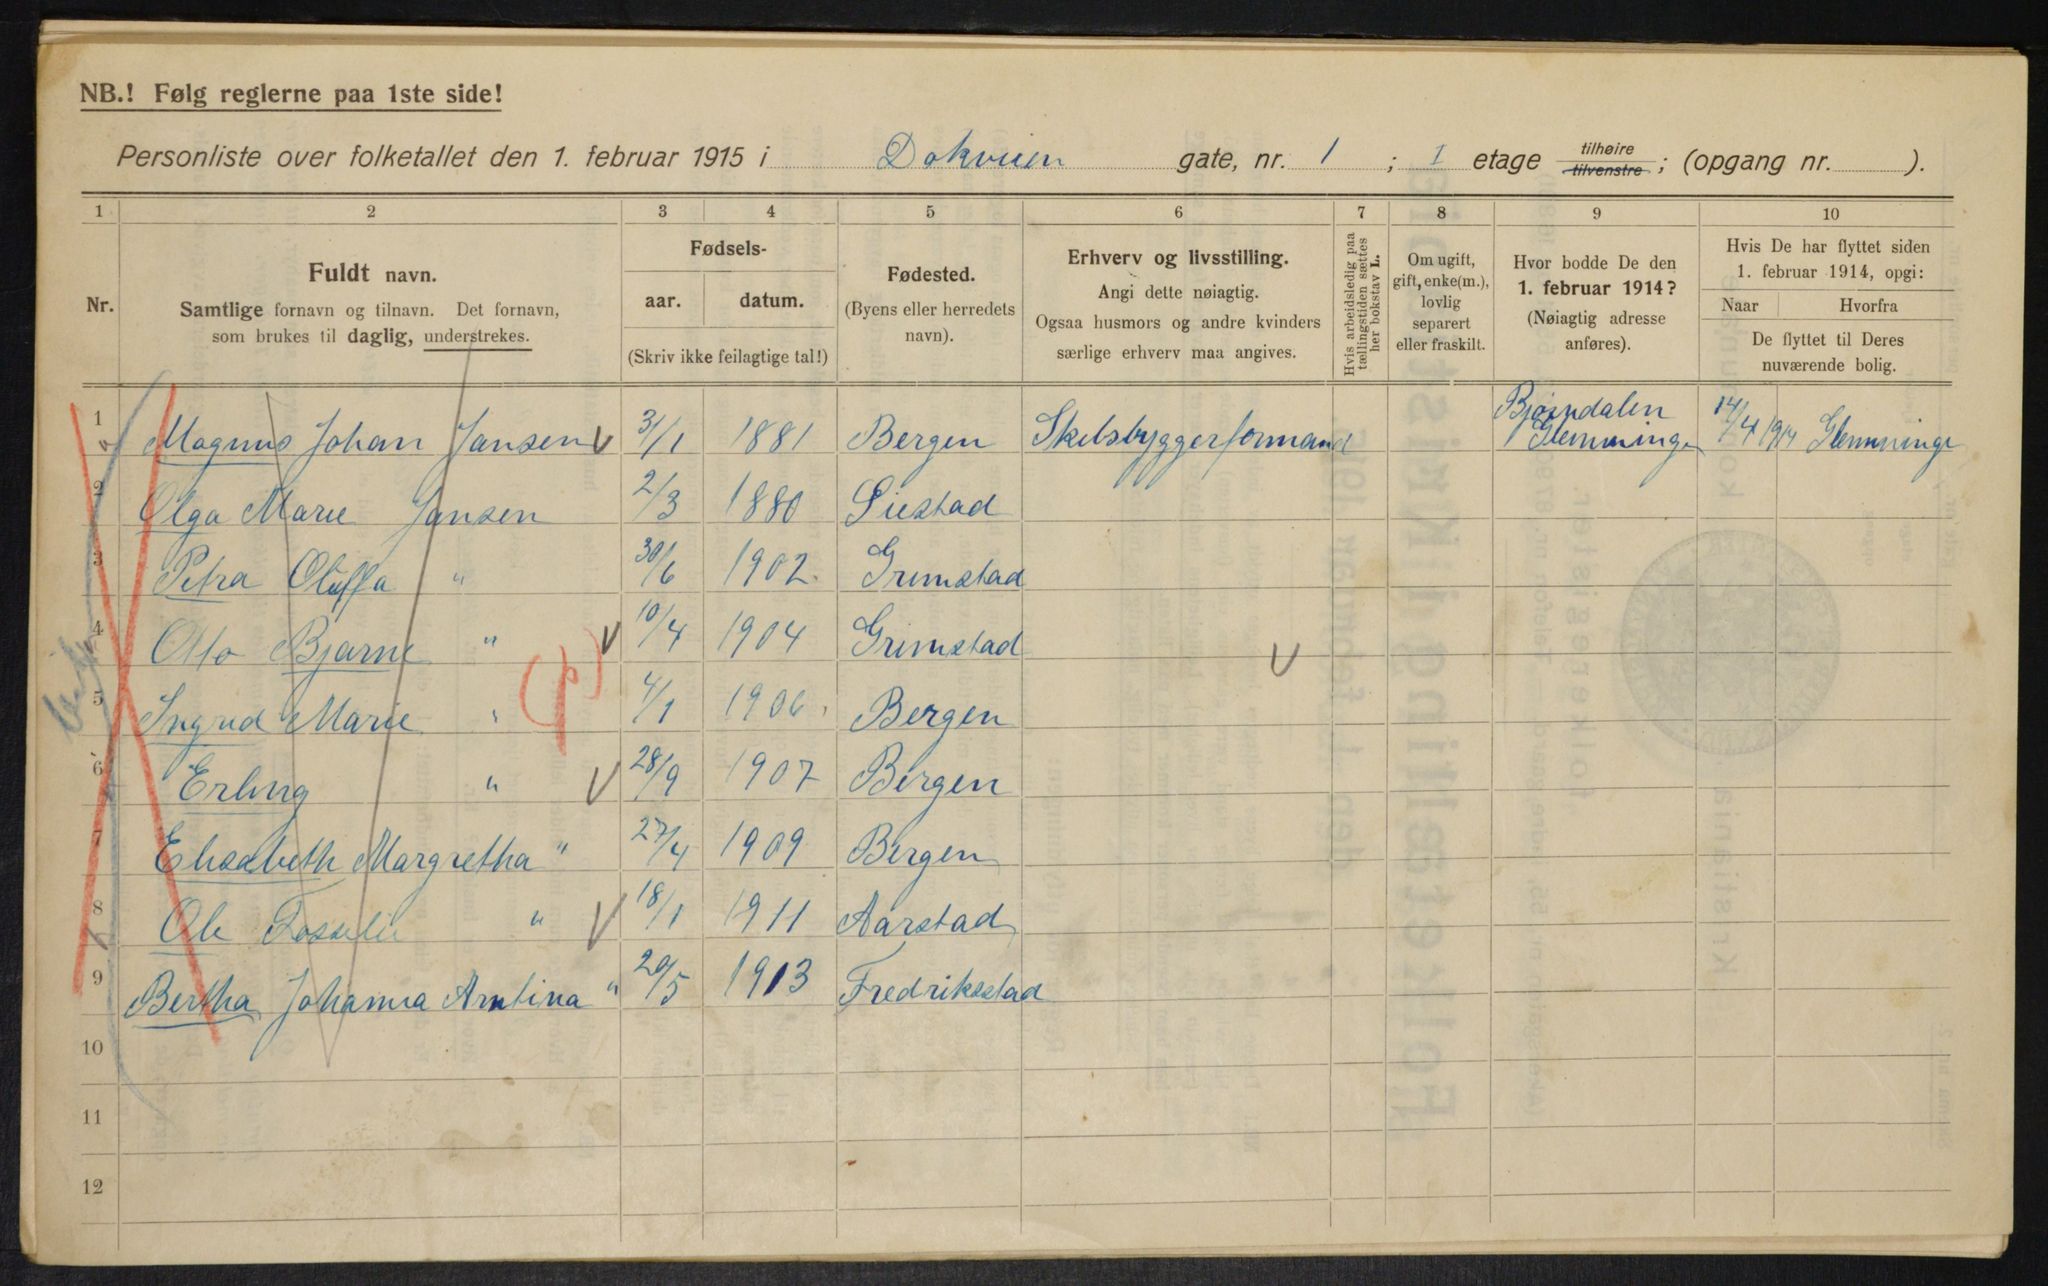 NB.! Følg reglerne paa 1ste side!
Personliste over folketallet den 1. februar 1915 i Dokveien gate, nr. 1 ; I etage tilhøire tilvenstre ; (opgang nr. ).
1 2 3 4 5 6 7 8 9 10
Nr.
Fuldt navn.
Samtlige fornavn og tilnavn. Det fornavn,
som brukes til daglig, understrekes.
Fødsels-
aar. datum.
(Skriv ikke feilagtige tal!)
Fødested.
(Byens eller herredets
navn).
Erhverv og livsstilling.
Angi dette nøiagtig.
Ogsaa husmors og andre kvinders
særlige erhverv maa angives.
Hvis arbeidsledig paa
tællingstiden sættes
her bokstav L.
Om ugift,
gift, enke(m.),
lovlig
separert
eller fraskilt.
Hvor bodde De den
1. februar 1914?
(Nøiagtig adresse
anføres).
Hvis De har flyttet siden
1. februar 1914, opgi:
Naar Hvorfra
De flyttet til Deres
nuværende bolig.
1 Magnus Johan Jansen 31/1 1881 Bergen Skibsbyggerformand Bjørndalen Glemminge 14/4 1914 Glemminge
2 Olga Marie Jansen 2/3 1880 
3 Petra Oluffa " 30/6 1902 Grimstad
4 Otto Bjarne " 10/4 1904 Grimstad
5 Ingrid Marie " 4/1 1906 Bergen
6 Erling " 28/9 1907 Bergen
7 Elisabeth Margretha " 27/4 1909 Bergen
8 Ole " 18/1 1911 Aarstad
9 Bertha Johanna Arntina " 20/5 1913 Fredriksstad
10
11
12